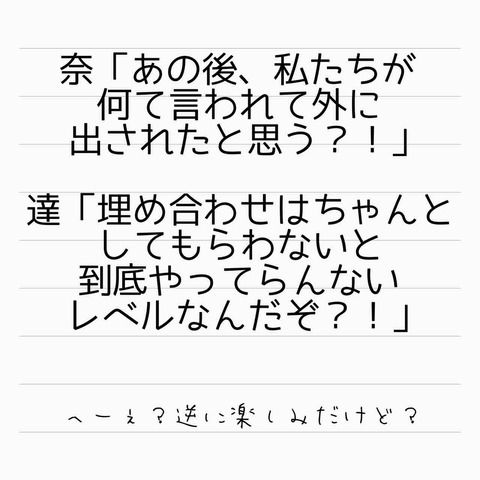 奈「あの後、私たちが
何て言われて外に
出されたと思う？！」
達「埋め合わせはちゃんと
してもらわないと
到底やってらんない
レベルなんだぞ？！」
へーぇ？逆に楽しみだけど？